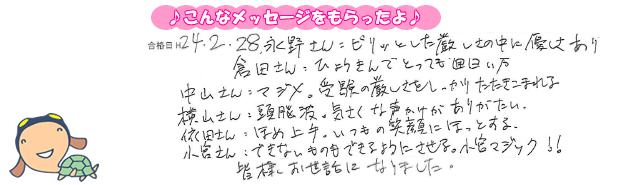 ♪こんなメッセージをもらったよ♪
合格日 H24.2.28. 永野さん：ピリッとした厳しさの中に優しさあり
倉田さん：ひょうきんでとっても面白い方
中山さん：マジメ。受験の厳しさをしっかりたたきこまれる
横山さん：頭脳波。気さくな声かけがありがたい。
依田さん：ほめ上手。いつもの笑顔にほっとする。
小宮さん：できないものもできるようにさせる。小宮マジック!!
皆様、お世話になりました。